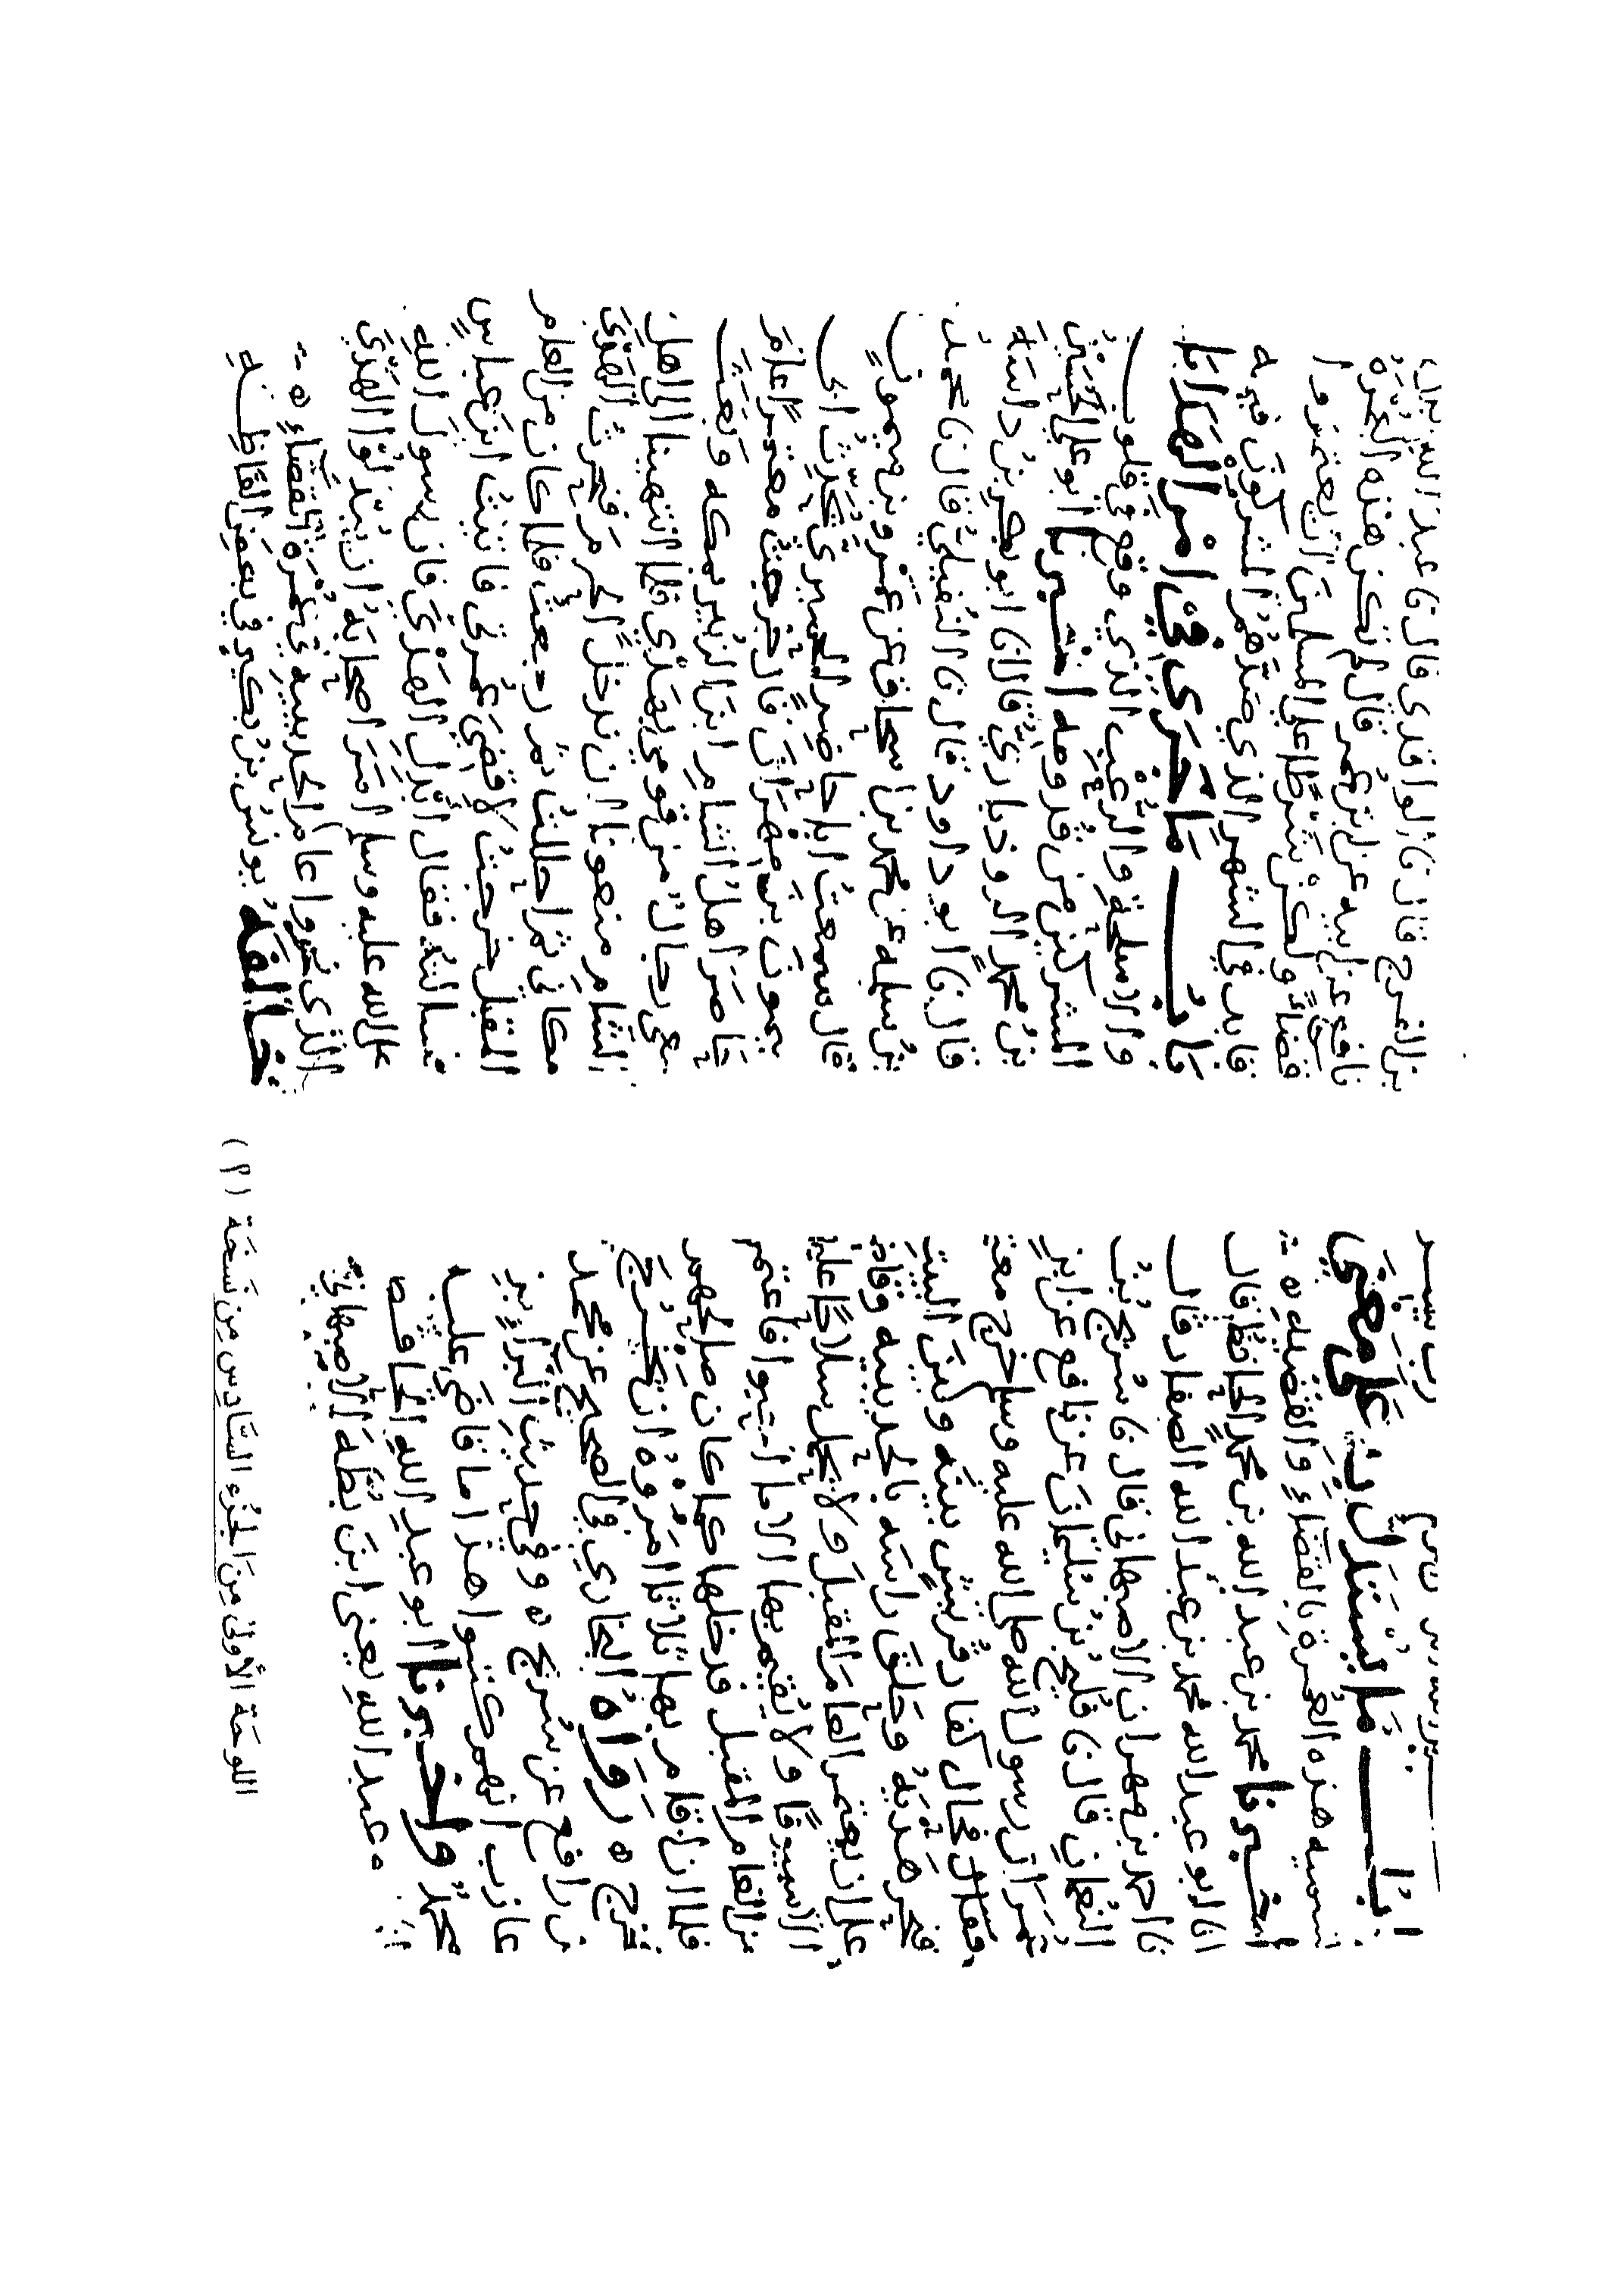 باب ما يستدل به على معنى
تسميه هذه العمرة بالقضاء والقضيه ه
أخبرنا محمد بن عبد الله بن محمد الحافظ قال
انا ابو عبد الله محمد بن عبد الله الصفار قال
نا احمد بن مهران الاصبهاني قال نا سريج بن
النعمان قال نا فليح بن سليمان عن نافع عن ابن
عمر ان رسول الله صلى الله عليه وسلم خرج معتمرا
فحال كفار قريش بينه وبين البيت
فنحر هديه وحلق راسه بالحديبيه وقاضاهم
على ان يعتمر العام المقبل ولا يحمل سلاحا عليهم
الا سيوفا ولا يقيم بها الا ما احبوا فاعتمر
من العام المقبل فدخلها كما كان صالحهم
فلما ان اقام بها ثلاثا امروه ان يخرج
فخرج ه رواه البخاري في الصحيح عن محمد
بن رافع عن سريج ه وفي حديث البراء بن
عازب انهم كتبوا هذا ما قاضى عليه
محمد واخبرنا ابو عبد الله الحافظ
عبد الله يعني ابن بطة الاصبهاني
بن الفرج قال نا الواقدي قال نا عبد الله بن
نافع عن ابيه عن ابن عمر قال لم تكن هذه العمرة
قضاء ولكن شرطا على المسلمين ان يعتمروا
قابل في الشهر الذي صدهم المشركون فيه
باب ما جرى في امر الهدايا
والاسلحة والرعب الذي وقع في قلوب
المشركين من قدومه اخبرنا ابو علي الحسين
بن محمد الروذباري قال انا ابو بكر بن داسة
قال نا ابو داود قال نا النفيلي قال نا محمد
بن سلمه عن محمد بن اسحاق عن عمرو بن ميمون
قال سمعت ابا حاضر الحميري يحدث ابي
ميمون بن مهران قال خرجت معتمرا عام
حاصر اهل الشام ابن الزبير بمكه وبعث
معي رجال من قومي بهدي فلما انتهينا الى اهل
الشام منعونا ان ندخل الحرم فنحرت الهدي
مكاني ثم احللت ثم رجعت فلما كان من العام
المقبل خرجت لاقضي عمرتي فاتيت ابن عباس
فسالته فقال ابدل الهدي فان رسول الله
صلى الله عليه وسلم امر اصحابه ان يبدلوا الهدي
الذي نحروا عام الحديبيه في عمرة القضاء ه
خالفه يونس بن بكير في بعض الفاظه
اللوحَة الأولىٰ مِنَ الجُزء السَّادِس مِن نسْخَة (م)